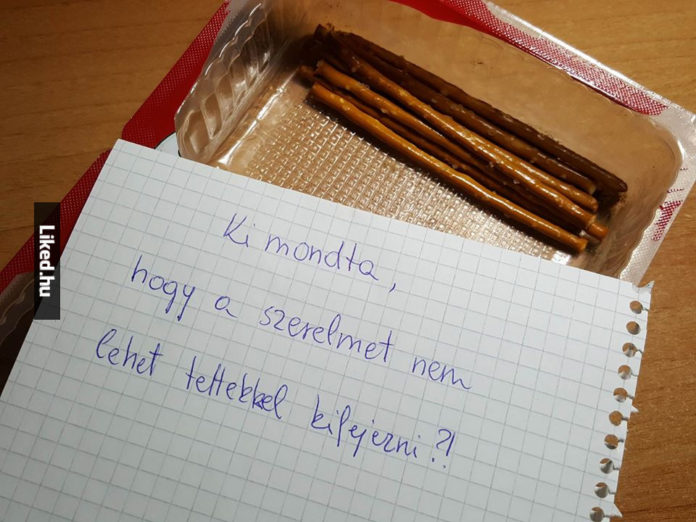 Ki mondta,
hogy a szerelmet nem
lehet tettekkel kifejezni?!
Liked.hu